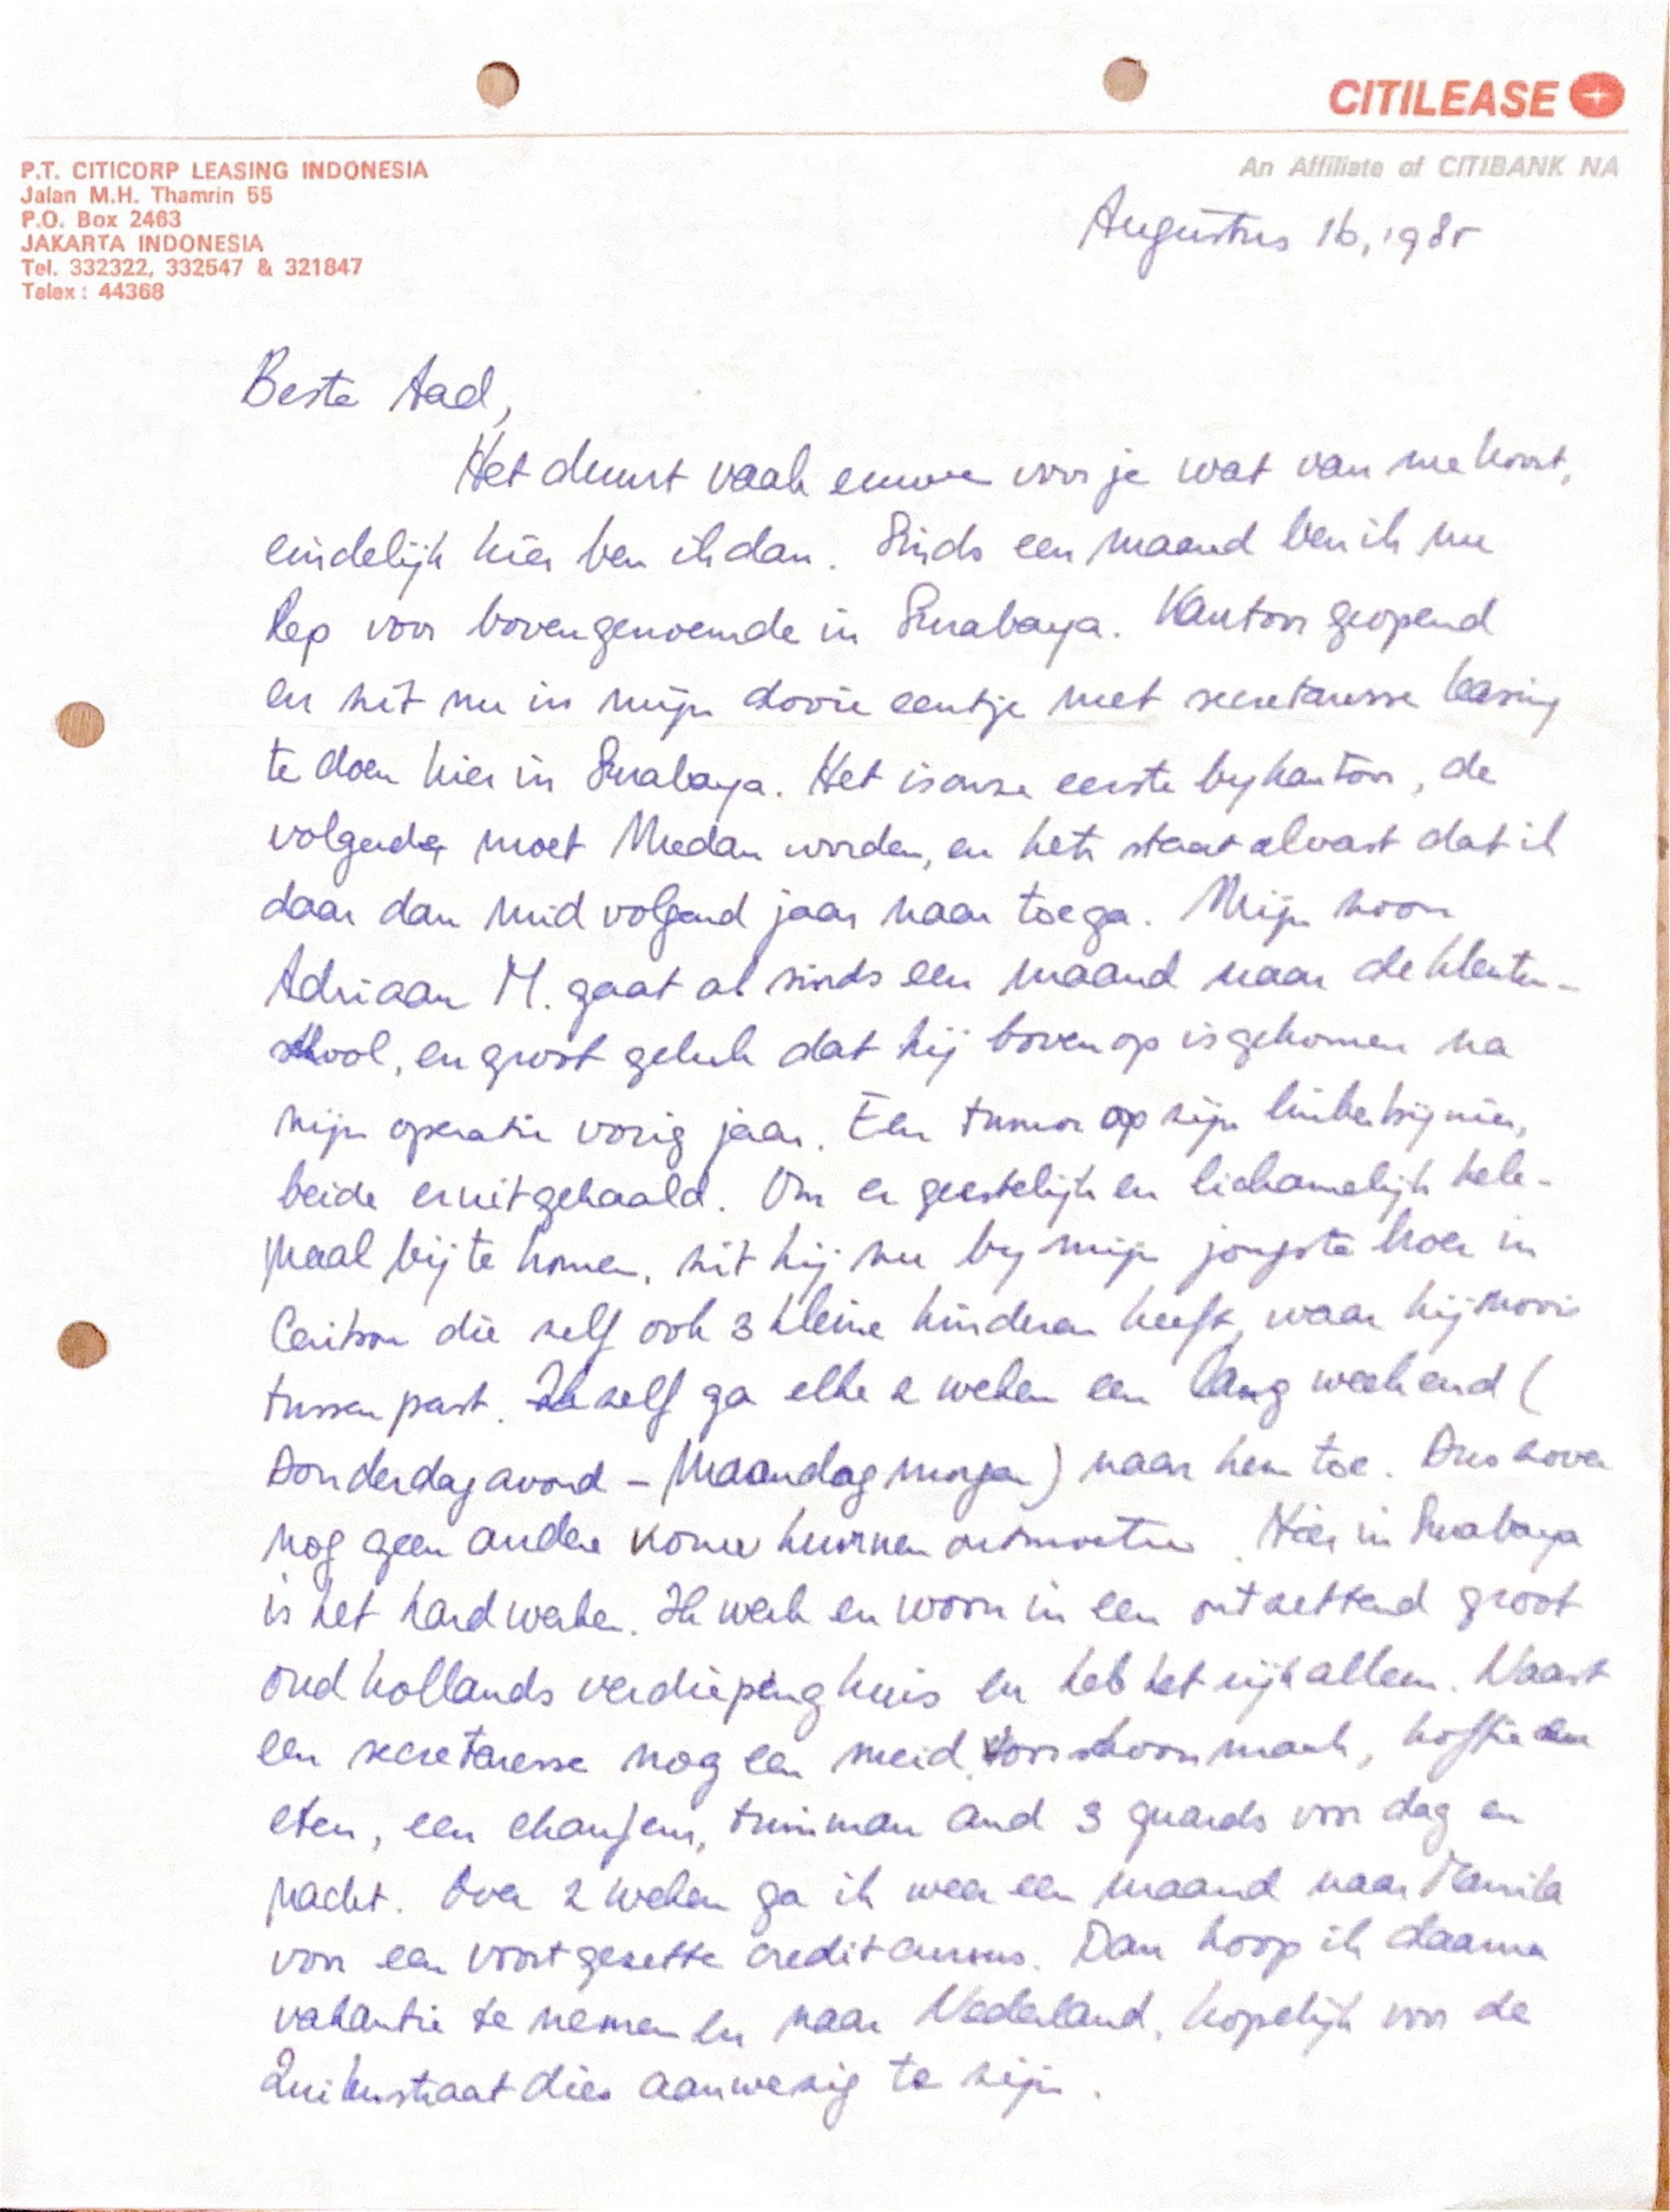 CITILEASE
An Affiliate of CITIBANK NA
P.T. CITICORP LEASING INDONESIA
Jalan M.H. Thamrin 55
P.O. Box 2463
JAKARTA INDONESIA
Tel. 332322, 332547 & 321847
Telex : 44368
Augustus 16, 1985
Beste Aad,
Het duurt vaak eeuwen voor je wat van me hoort,
eindelijk hier ben ik dan. Sinds een maand ben ik nu
Rep voor bovengenoemde in Surabaya. Kantoor geopend
en zit nu in mijn dooie eentje met secretaresse leasing
te doen hier in Surabaya. Het is onze eerste bykantoor, de
volgende moet Medan worden, en het staat alvast dat ik
daar dan mid volgend jaar naar toe ga. Mijn zoon
Adriaan M. gaat al sinds een maand naar de kleuter-
school, en groot geluk dat hij bovenop is gekomen na
zijn operatie vorig jaar. Een tumor op zijn linker bijnier,
beide eruitgehaald. Om er geestelijk en lichamelijk hele-
maal bij te komen, zit hij nu by mijn jongste broer in
die zelf ook 3 kleine kinderen heeft, waar hij mooi
tussen past. Ik zelf ga elke 2 weken een lang weekend (
Donderdagavond - Maandagmorgen) naar hem toe. Dus zover
nog geen andere kunnen ontmoeten. Hier in Surabaya
is het hard werken. Ik werk en woon in een ontzettend groot
oud hollands verdieping huis en heb het rijk alleen. Naast
een secretaresse nog een meid voor schoonmaak, koffie en
eten, een chaufeur, tuinman and 3 guards voor dag en
nacht. Over 2 weken ga ik weer een maand naar Manila
voor een voortgezette credit cursus. Dan hoop ik daarna
vakantie te nemen en naar Nederland, hopelijk voor de
dies aanwezig te zijn.